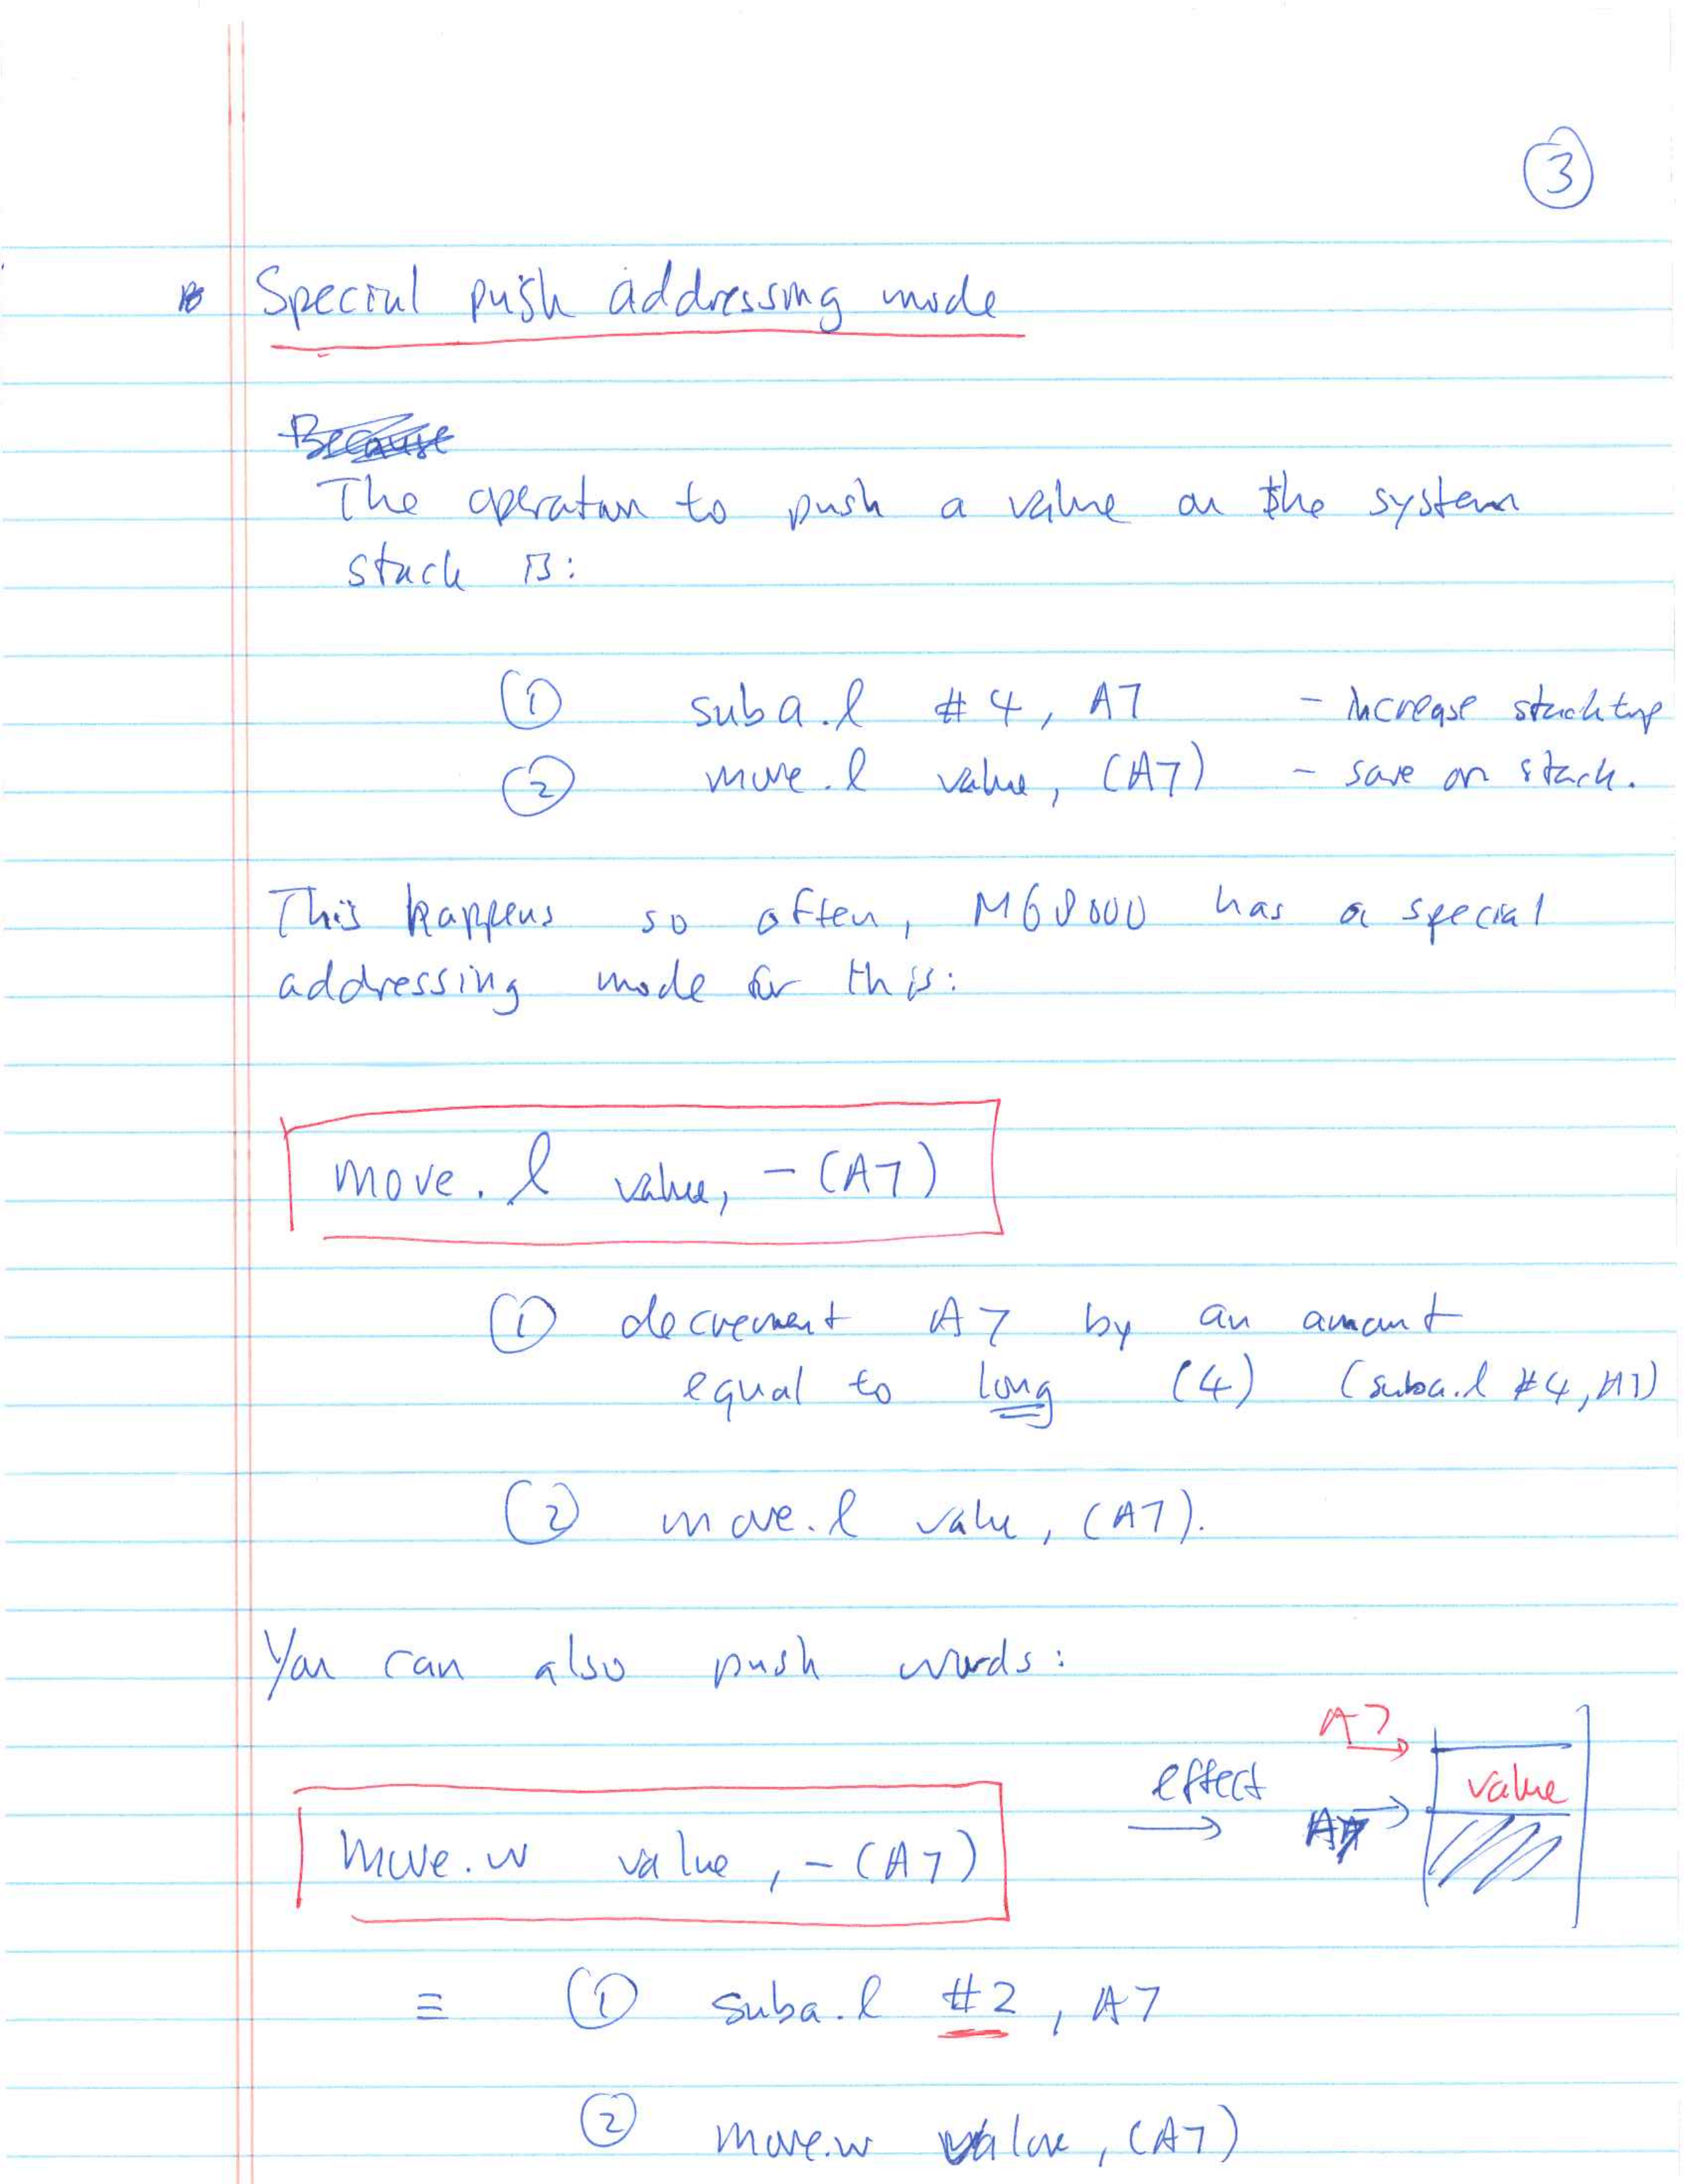 ③
Special push addressing mode
Because
The operation to push a value on the system
stack is:
① suba.l #4, A7 - Increase stacktop
② move.l value, (A7) - save on stack.
This happens so often, M68000 has a special
addressing mode for this:
move.l value, -(A7)
① decrement A7 by an amount
equal to long (4) (suba.l #4, A7)
② move.l value, (A7).
You can also push words:
A7
effect
value
A7
move.w value, -(A7)
≡ ① suba.l #2, A7
② move.w value, (A7)